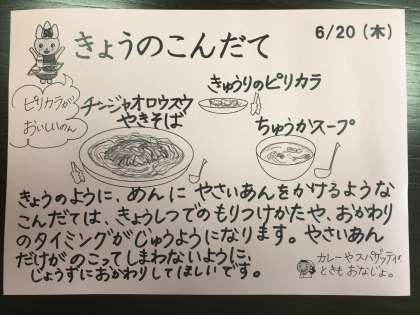 6/20(木)
きょうのこんだて
ピリカラが
おいしいのん
きゅうりのピリカラ
チンジャオロウスウ
やきそば
ちゅうかスープ
きょうのように、めんに やさいあんをかけるような
こんだては、きょうしつでのもりつけかたや、おかわり
のタイミングがじゅうようになります。やさいあん
だけがのこってしまわないように、
じょうずにおかわりしてほしいです。
カレーやスパゲッティの
ときもおなじょ。